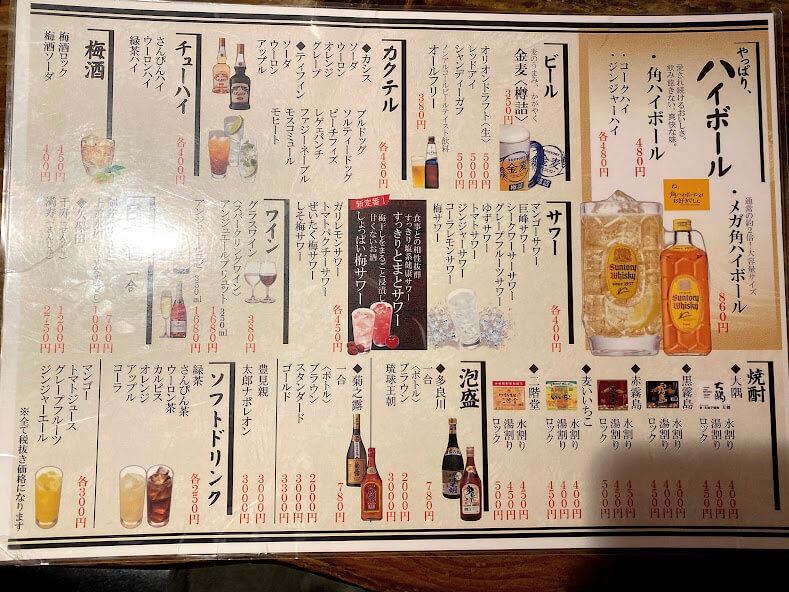 やっぱり、
ハイボール
愛され続けるおいしさ。
飲み飽きない、爽快な味。
・角ハイボール
480円
・コークハイ
・ジンジャーハイ
各480円
通常の約2倍!大容量サイズ
・メガ角ハイボール
860円
ね。
角ハイボールが
お好きでしょ
SUNTORY WHISKY
Suntory
Whisky
ビール
麦のうまみ、かがやく
金麦〈樽詰〉
350円
オリオンドラフト〈生〉
500円
レッドアイ
500円
シャンディーガフ
500円
ノンアルコールビールテイスト飲料
オールフリー
380円
金麦
カクテル
各480円
◆カシス
ソーダ
ウーロン
オレンジ
グレープ
◆ティフィン
ソーダ
ウーロン
アップル
ブルドッグ
ソルティドッグ
ピーチフィズ
レゲエパンチ
ファジーネーブル
モスコミュール
モヒート
チューハイ
各400円
さんぴんハイ
ウーロンハイ
緑茶ハイ
梅酒
梅酒ロック
450円
梅酒ソーダ
400円
サワー
各400円
マンゴーサワー
巨峰サワー
シークワーサーサワー
グレープフルーツサワー
ゆずサワー
トマトサワー
ジンジャーサワー
コーラレモンサワー
梅サワー
新定番!
食事との相性抜群
すっきり塩系健康サワー
すっきりとまとサワー
梅干しをまるごと浸漬し
甘くないお酒
しょっぱい梅サワー
ガリレモンサワー
トマトパクチーサワー
ぜいたく梅サワー
しそ梅サワー
各450円
ワイン
グラスワイン
380円
〈スパークリングワイン〉
1680円
1680円
700円
1000円
1200円
2750円
焼酎
◆大隅
水割り
湯割り
ロック
◆黒霧島
水割り
湯割り
ロック
◆赤霧島
水割り
湯割り
ロック
◆麦いいちこ
水割り
湯割り
ロック
◆二階堂
水割り
湯割り
ロック
泡盛
◆多良川
一合
780円
〈ボトル〉
ブラウン
2000円
琉球王朝
3000円
◆菊之露
一合
780円
〈ボトル〉
ブラウン
2000円
スタンダード
3000円
ゴールド
3300円
豊見親
3000円
太郎ナポレオン
3000円
ソフトドリンク
各250円
緑茶
さんぴん茶
ウーロン茶
カルピス
オレンジ
アップル
コーラ
マンゴー
トマトジュース
グレープフルーツ
ジンジャーエール
各300円
※全て税抜き価格になります